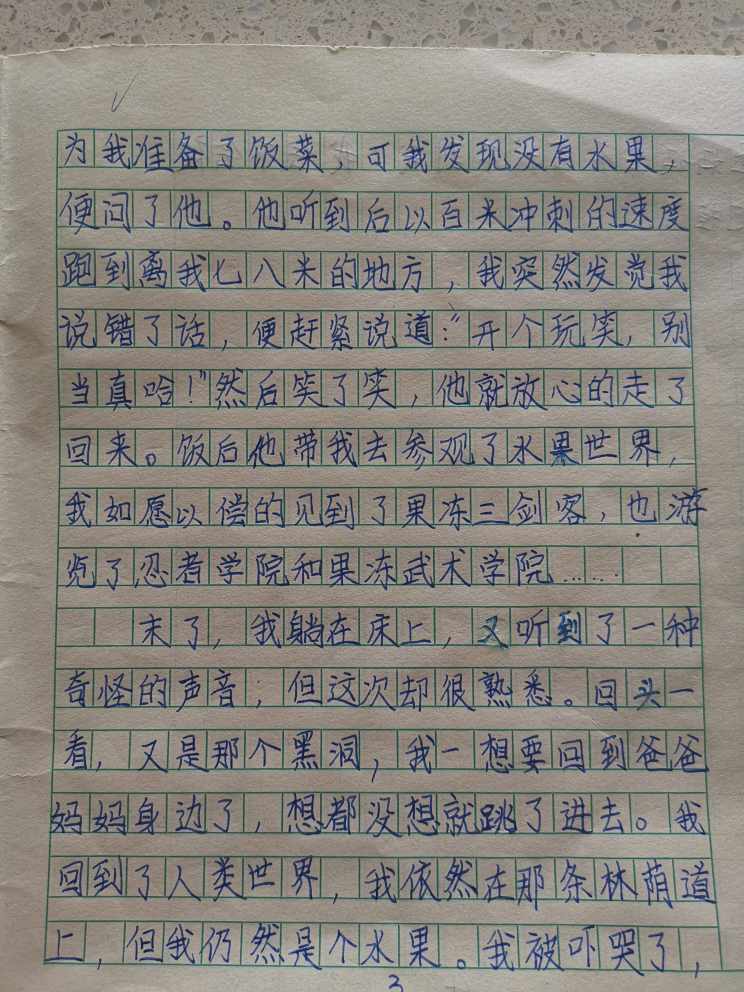 为我准备了饭菜，可我发现没有水果，
便问了他。他听到后以百米冲刺的速度
跑到离我七八米的地方，我突然发觉我
说错了话，便赶紧说道：“开个玩笑，别
当真哈！”然后笑了笑，他就放心的走了
回来。饭后他带我去参观了水果世界，
我如愿以偿的见到了果冻三剑客，也游
览了忍者学院和果冻武术学院……
末了，我躺在床上，又听到了一种
奇怪的声音；但这次却很熟悉。回头一
看，又是那个黑洞，我一想要回到爸爸
妈妈身边了，想都没想就跳了进去。我
回到了人类世界，我依然在那条林荫道
上，但我仍然是个水果。我被吓哭了，
3